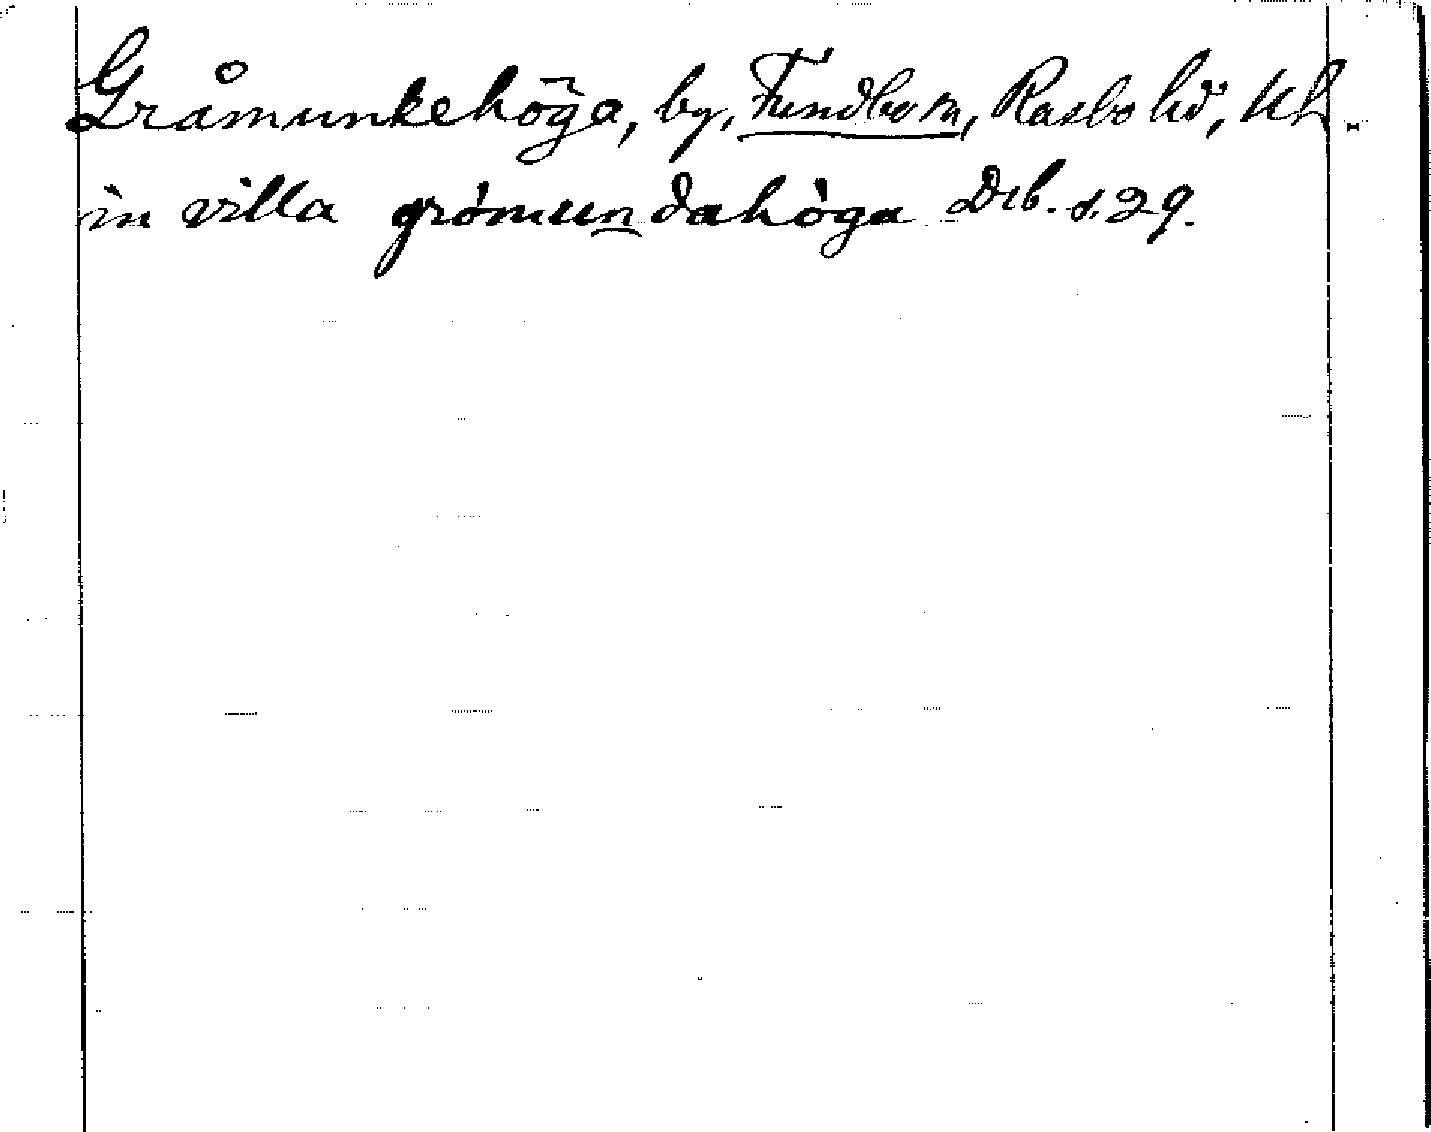 Gråmunkehöga, by, Fundbo sn, Rasbo hd, Upl.
in villa grómundahöga Drb. s. 29.